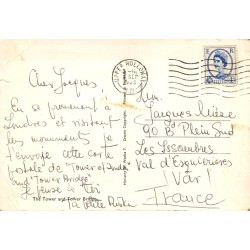 Cher Jacques,
En se promenant à
Londres et visitant
les monuments je
t'envoie cette carte
postale de "Tower of
and "Tower Bridge"
Je pense à toi
The Tower and Tower Bridge
UPPER HOLLOWAY
SEP
Jacques
90 B Plein Sud
Les Issambres
Val d'Esquieres
Var
France